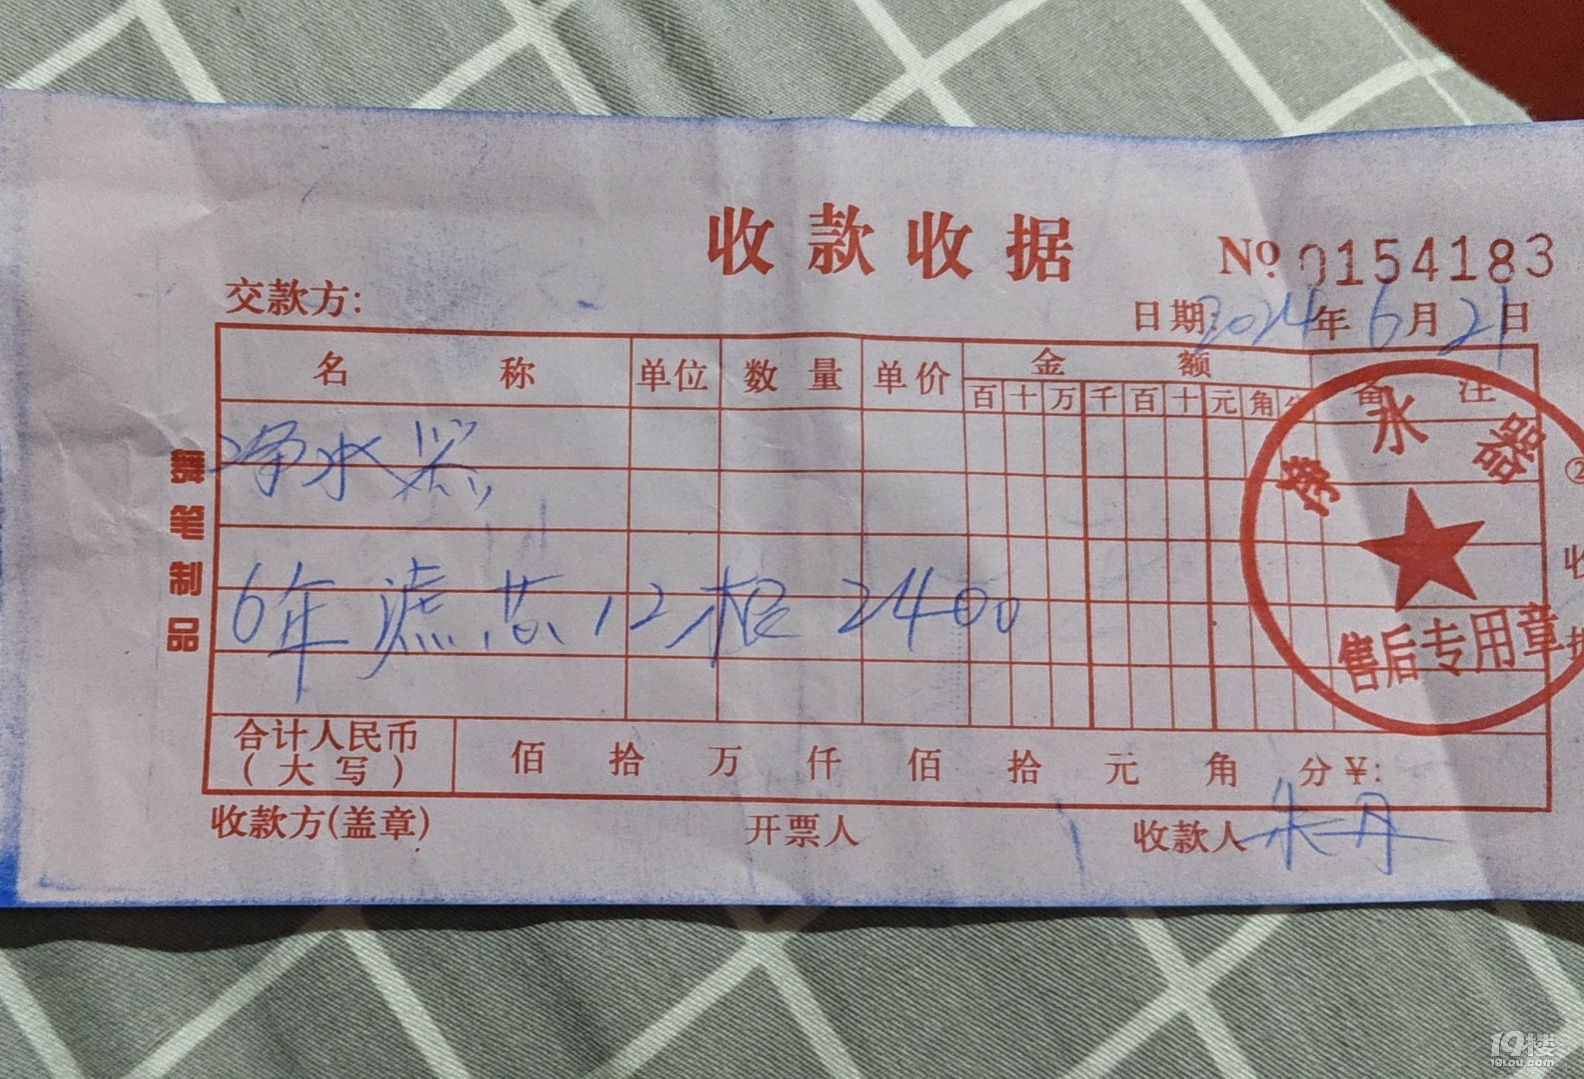 收款收据
No 0154183
交款方:
日期: 2024年6月21日
名称 单位 数量 单价 金额 备注
百 十 万 千 百 十 元 角 分
净水器
6年滤芯12根 2400
合计人民币(大写) 佰 拾 万 仟 佰 拾 元 角 分 ¥:
收款方(盖章) 开票人 收款人 朱丹
舞笔制品
净水器
售后专用章
② 收
19楼
19lou.com